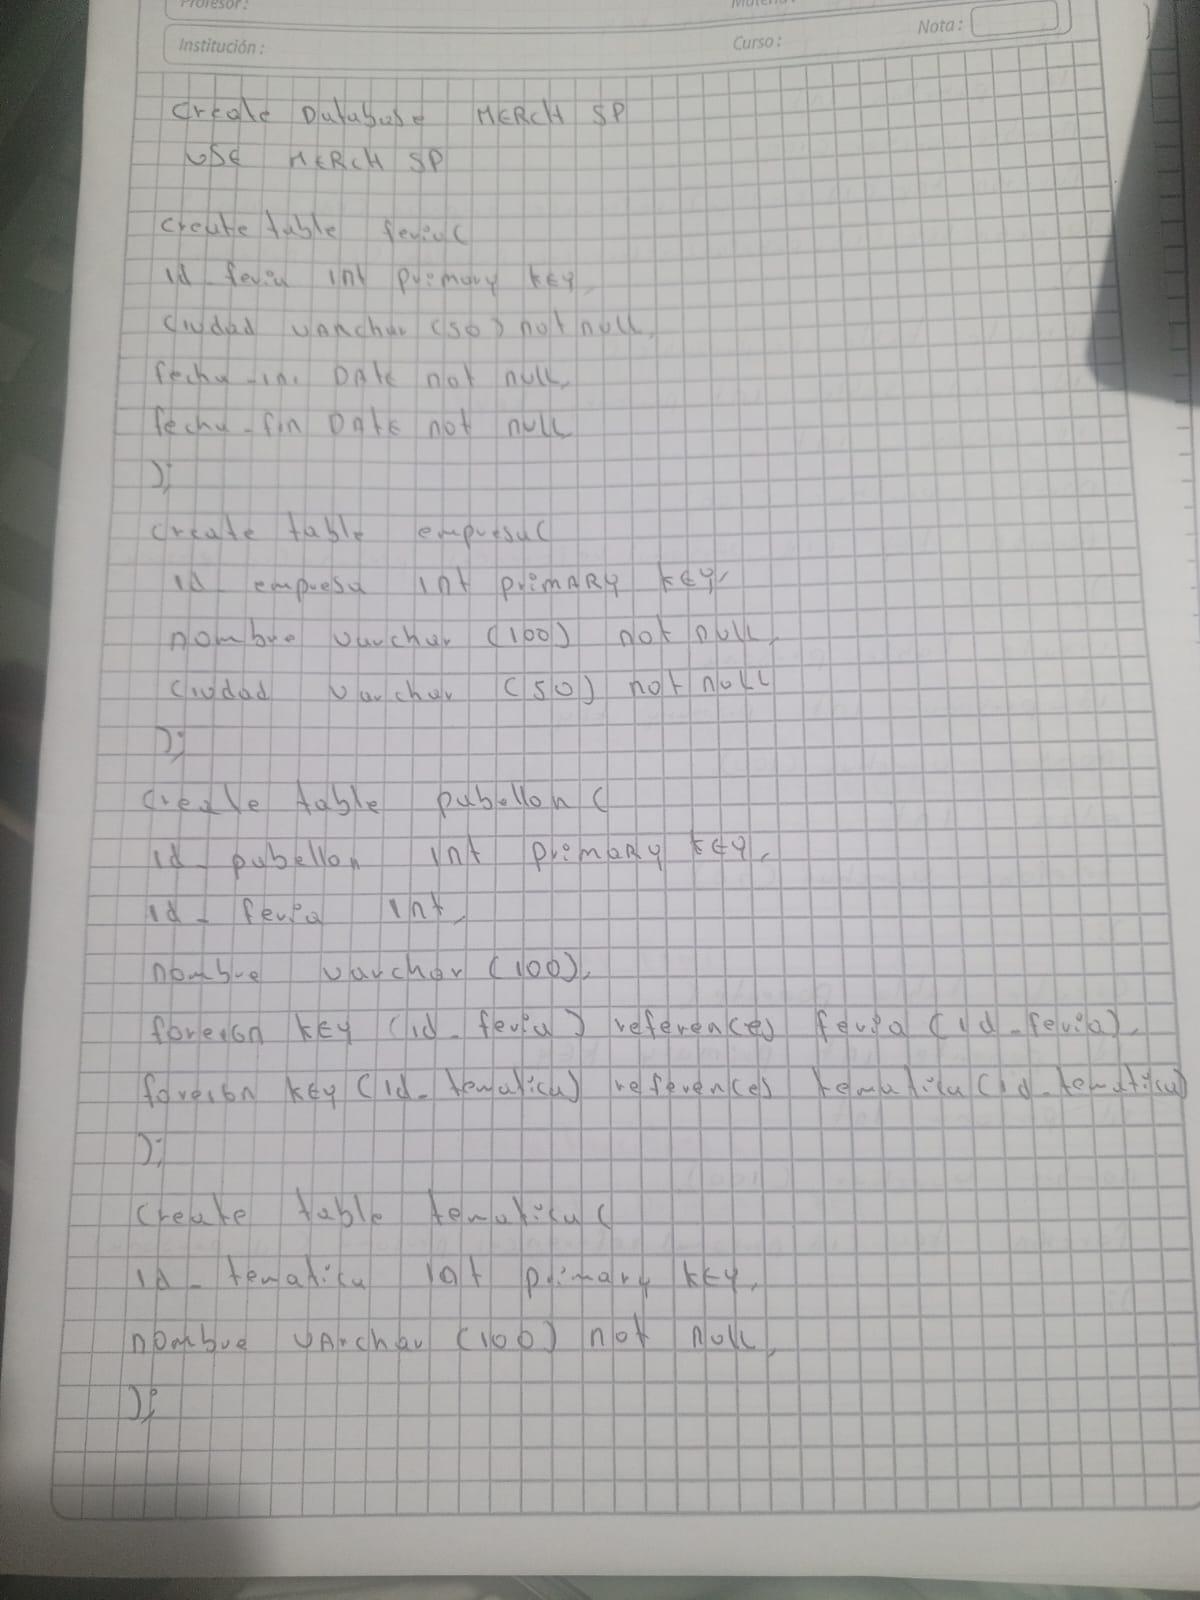 Profesor:
Materia:
Nota:
Institución:
Curso:
Create Database MERCH SP
USE MERCH SP
Create table feria(
id_feria int primary key,
Ciudad varchar (50) not null,
fecha_ini DATE not null,
fecha_fin DATE not null
);
Create table empresa(
id_empresa int primARy key,
nombre varchar (100) not null,
Ciudad varchar (50) not null
);
Create table pabellon (
id_pabellon int primary key,
id_feria int,
nombre varchar (100),
foreign key (id_feria) references feria (id_feria),
foreign key (id_tematica) references tematica (id_tematica)
);
Create table tematica (
id_tematica int primary key,
nombre varchar (100) not null,
);